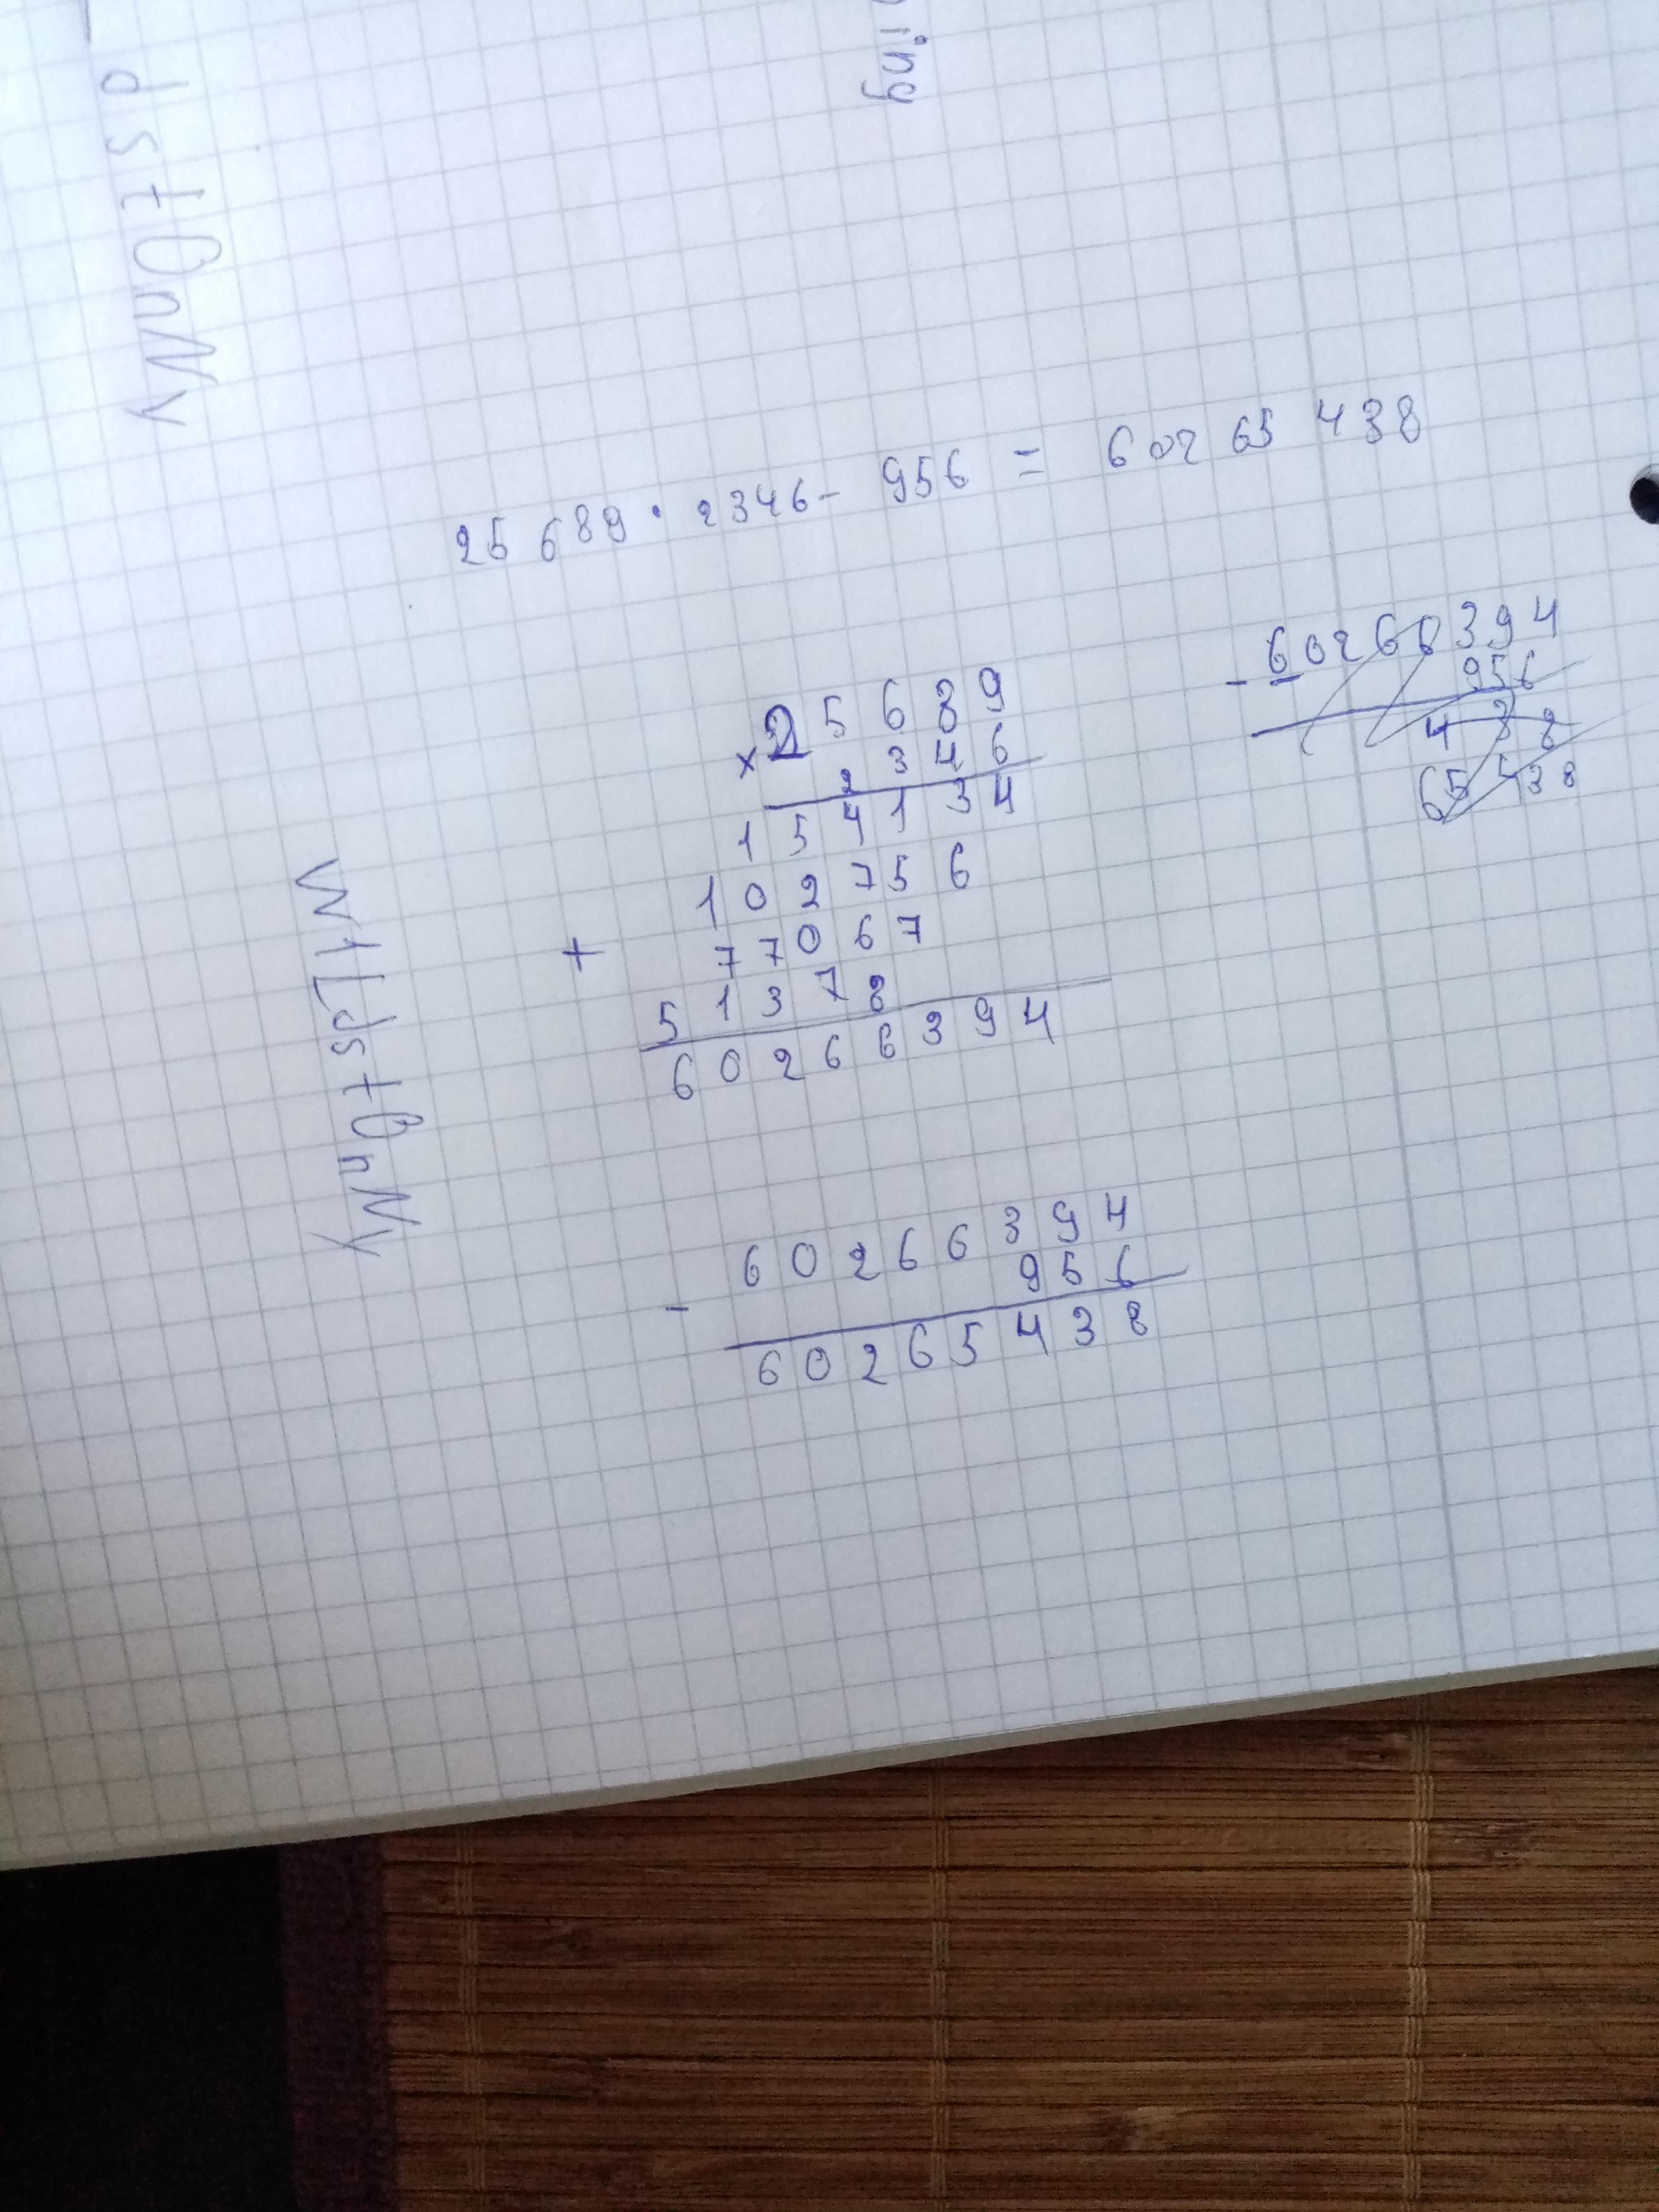 ing
25 689 · 2346 - 956 = 602 65 438
25689
× 2346
154134
102756
+ 77067
51378
60266394
- 60266394
956
438
65 438
60266394
- 956
60265438